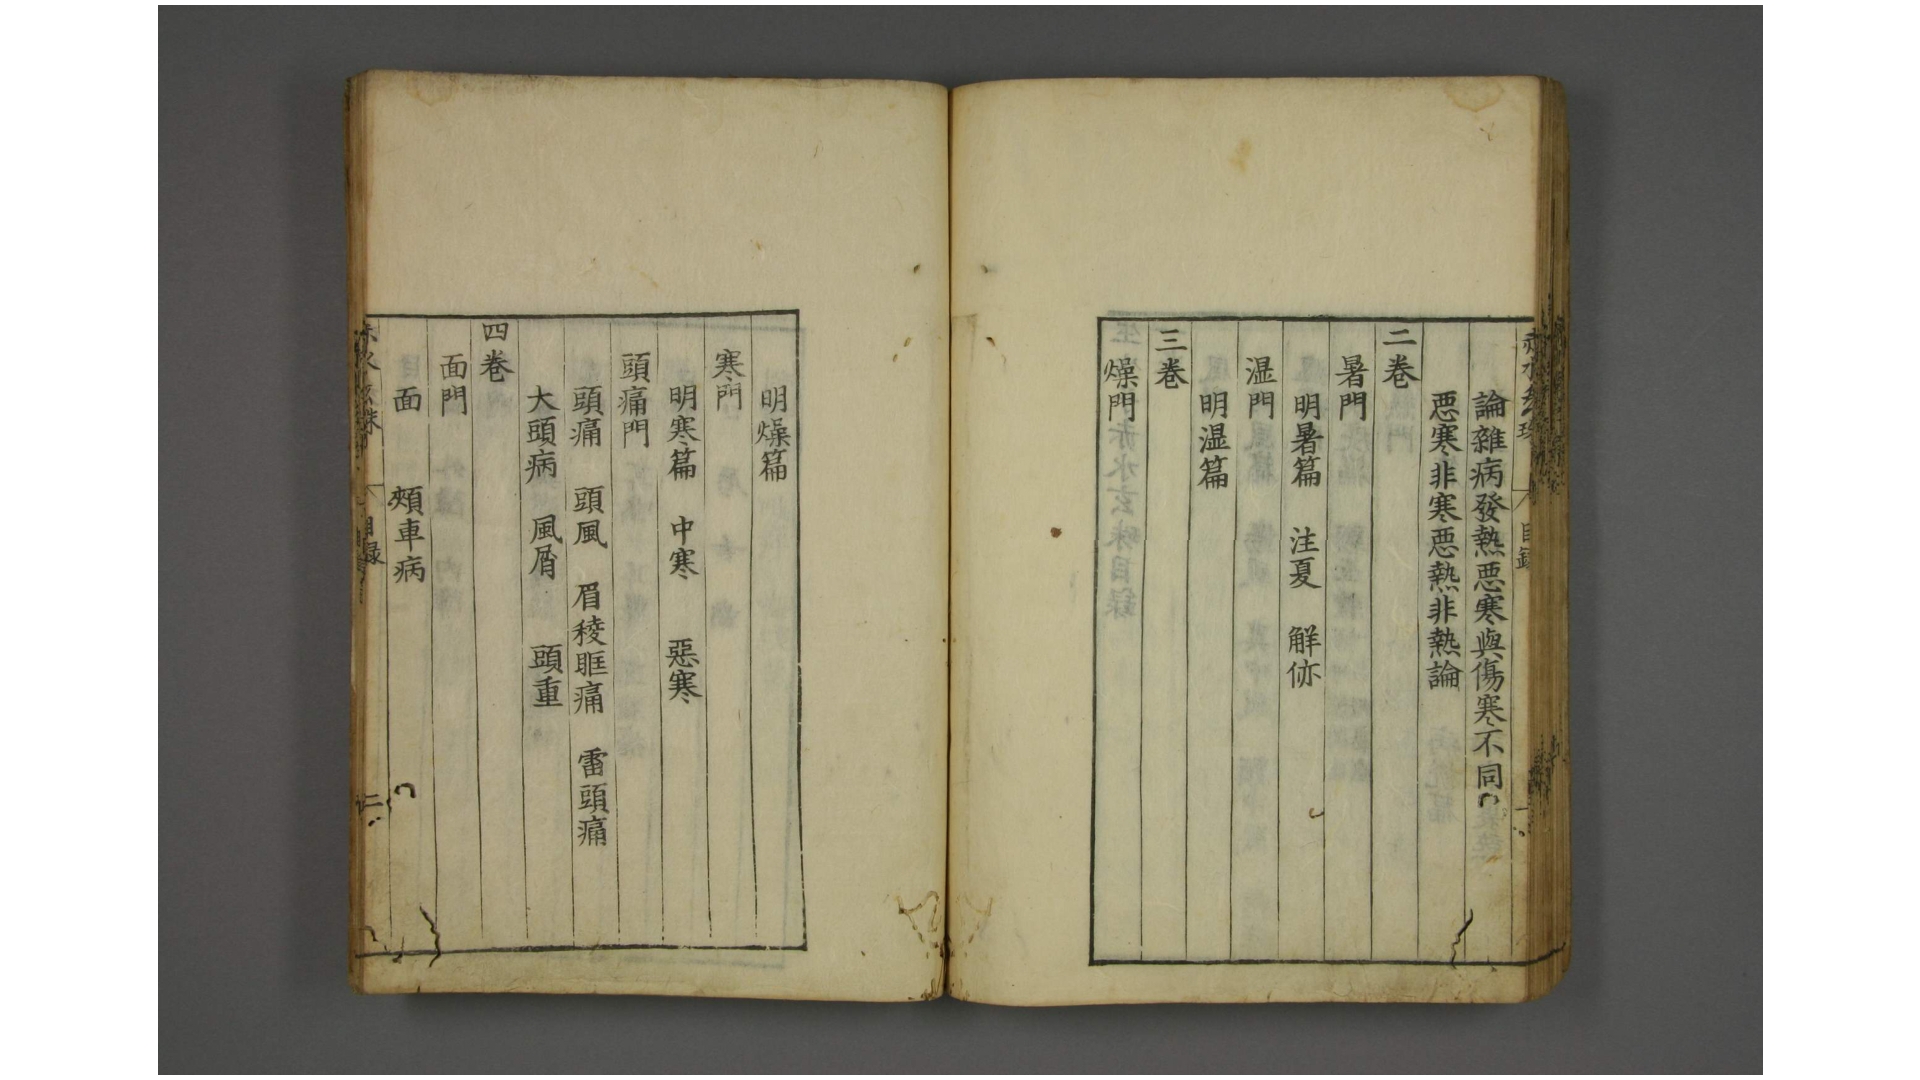 論雜病發熱悪寒與傷寒不同
悪寒非寒悪熱非熱論
二巻
暑門
明暑篇 注夏 解㑊
湿門
明湿篇
三巻
燥門
明燥篇
寒門
明寒篇 中寒 惡寒
頭痛門
頭痛 頭風 眉稜眶痛 雷頭痛
大頭病 風屑 頭重
四巻
面門
面 頰車病
目録